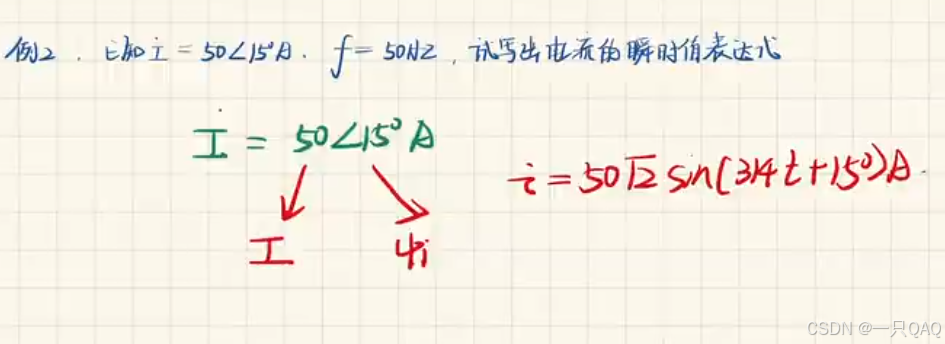 例2. 已知İ=50∠15°A. f=50HZ,试写出电流的瞬时值表达式
İ = 50∠15°A
i=50√2 sin(314t+15°)A.
I ψi
CSDN @一只QAQ